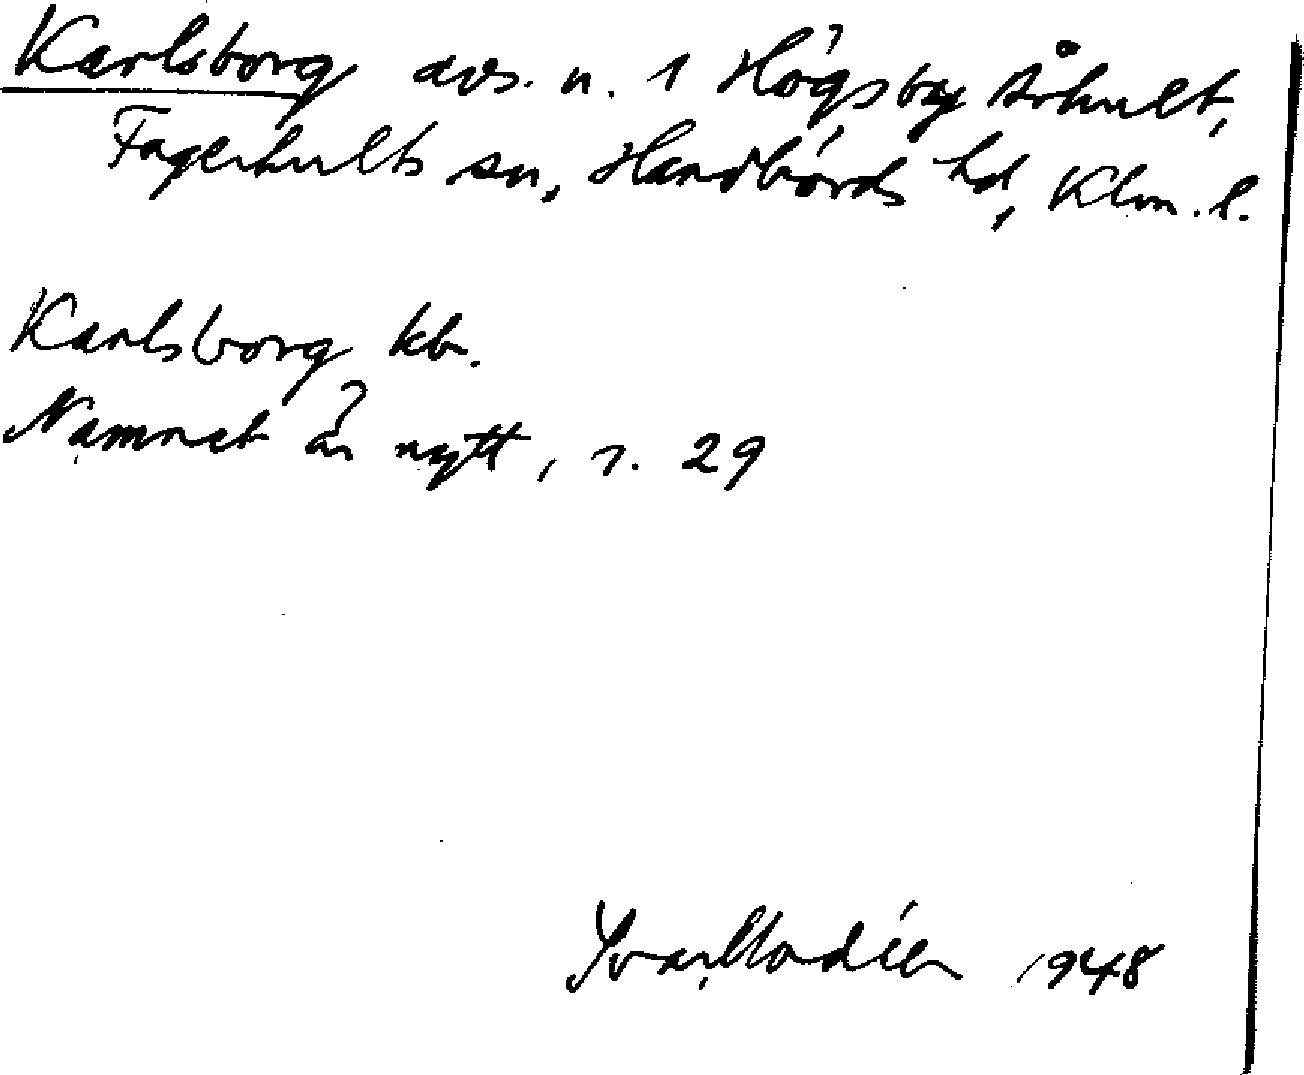 Karlsborg avs. u. 1 Högsby Århult,
Fagerhults sn, Handbörds hd, Klm. l.
Karlsborg kb.
Namnet är nytt, r. 29
Ivar Modéer 1948